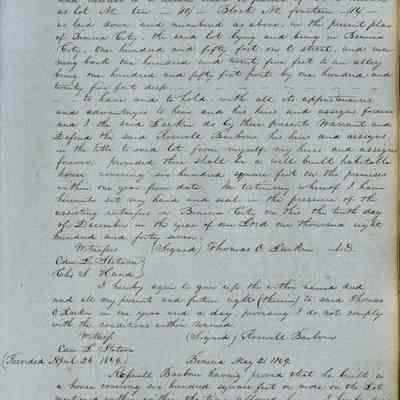 as lot No. ten 10 Block No. fourteen 14
as laid down and numbered as above, in the present plan
of Benicia City, the said lot lying and being in Benicia
City, one hundred and fifty feet on C street, and run
ning back one hundred and twenty five feet to an alley
being one hundred and fifty feet front by one hundred and
twenty five feet deep
to have and to hold, with all its appurtenances
and advantages to him and his heirs and assigns forever
and I the said Larkin do by these present Warrant and
Defend the said Roswell Barbour his heirs and assigns
in the title to said lot from myself my heirs and assigns
forever. provided there shall be a well built habitable
house covering six hundred square feet on the premises
within one year from date. In testimony whereof I have
hereunto set my hand and seal in the presence of the
assisting witnesses in Benicia City on this the tenth day
of December in the year of our Lord one thousand eight
hundred and forty seven.
Witnesses (Signed) Thomas O Larkin
Edw L. Stetson
Chs S. Hand
I hereby agree to give up the within named deed
and all my present and future right (therein) to said Thomas
O Larkin in one year and a day, providing I do not comply
with the conditions within named
Witness (Signed) Roswell Barbour
Edw L. Stetson
(Recorded April 24 1849.) Benicia May 21 1849.
Roswell Barbour having proved that he built a
a house covering six hundred square feet or more on the Lot